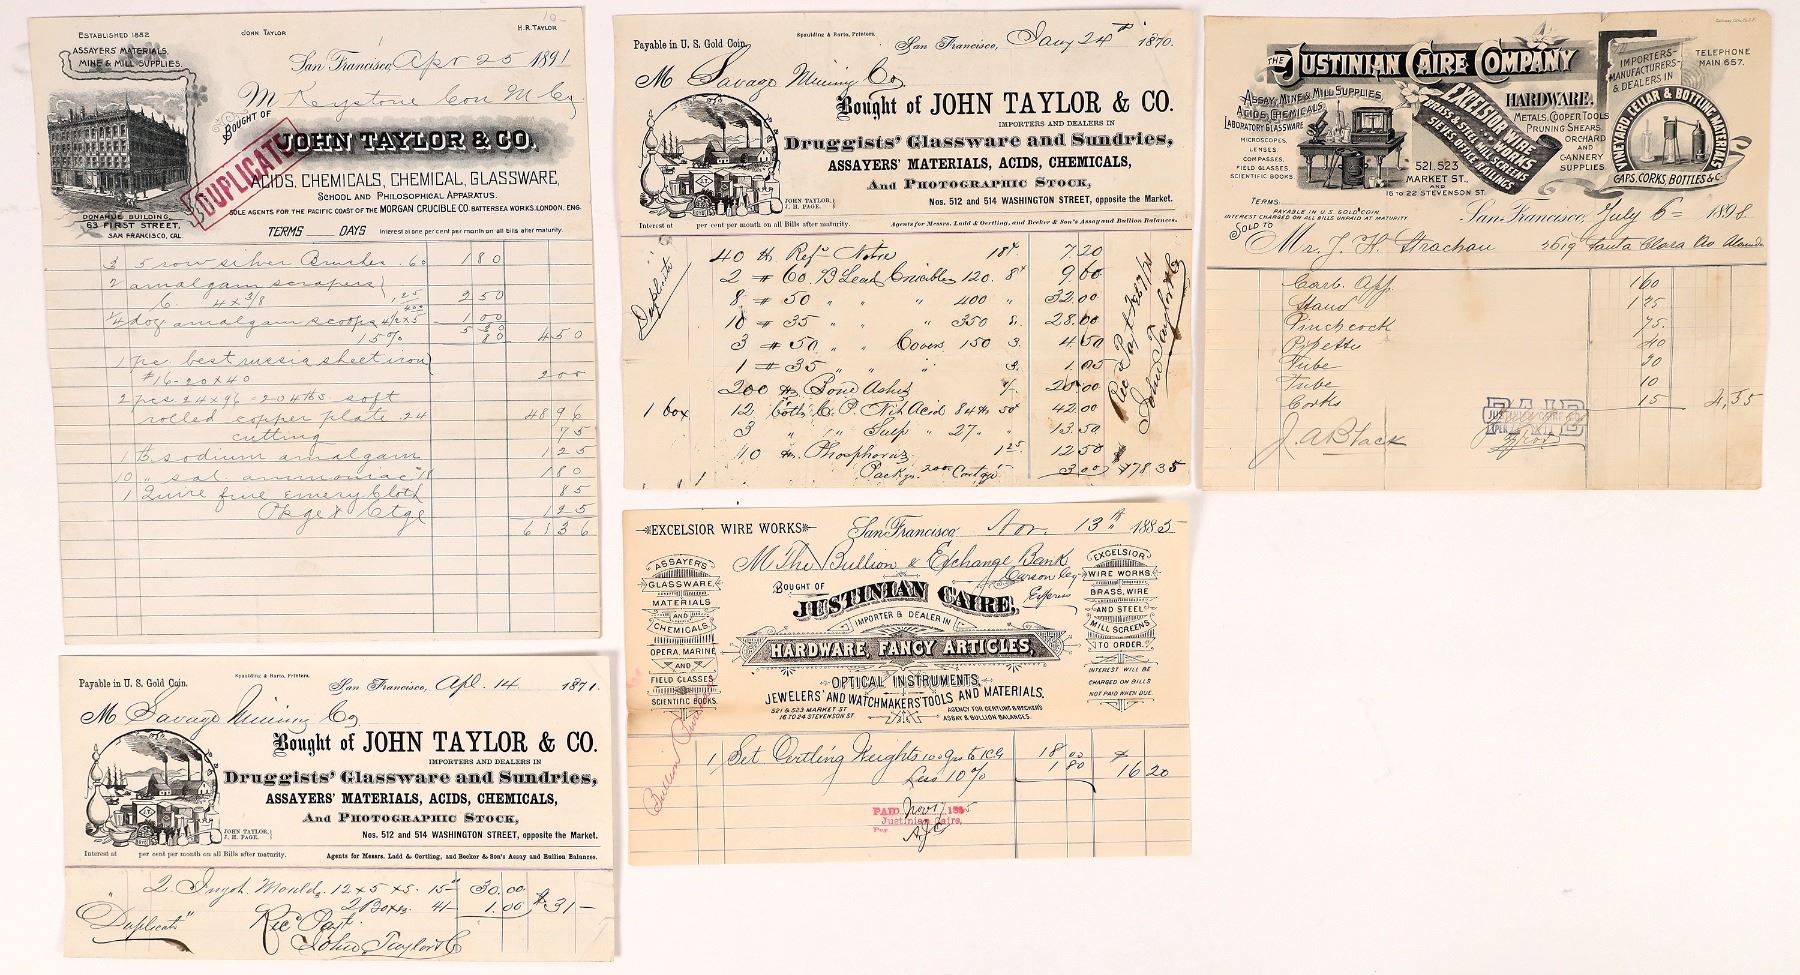 10-
ESTABLISHED 1852
JOHN TAYLOR
H. R. TAYLOR
ASSAYERS' MATERIALS.
MINE & MILL SUPPLIES.
San Francisco, Apr 25 1891
M Keystone Con M Co
BOUGHT OF
JOHN TAYLOR & CO.
DUPLICATE
ACIDS, CHEMICALS, CHEMICAL GLASSWARE,
SCHOOL AND PHILOSOPHICAL APPARATUS.
SOLE AGENTS FOR THE PACIFIC COAST OF THE MORGAN CRUCIBLE CO. BATTERSEA WORKS, LONDON, ENG.
DONAHUE BUILDING,
63 FIRST STREET,
SAN FRANCISCO, CAL
TERMS DAYS Interest at one per cent per month on all bills after maturity.
3 5 row silver Brushes .60 1 80
2 amalgam scrapers
6. 4 x 3/8 1,25 2 50
1/4 doz amalgam scoops 4 1/2 x 5 4.00 1 00
5 30
15% 80 4 50
1 pc. best russia sheet iron
#16-20 x 40 2 00
2 pcs 24 x 96 = 204 lbs. soft
rolled copper plate .24 48 96
cutting 75
1 lb sodium amalgam 1 25
10 " sal ammoniac 18 1 80
1 Quire fine Emery Cloth 85
Pkge & Ctge 1 25
61 36
Payable in U. S. Gold Coin.
Spaulding & Barto, Printers.
San Francisco, Jany 24th 1870.
M Savage Mining Co
Bought of JOHN TAYLOR & CO.
IMPORTERS AND DEALERS IN
Druggists' Glassware and Sundries,
ASSAYERS' MATERIALS, ACIDS, CHEMICALS,
And PHOTOGRAPHIC STOCK,
JOHN TAYLOR,
J. H. PAGE.
Nos. 512 and 514 WASHINGTON STREET, opposite the Market.
Interest at per cent per month on all Bills after maturity.
Agents for Messrs. Ladd & Oertling, and Becker & Son's Assay and Bullion Balances.
Duplicate
40 lbs Refd Nitre 18¢ 7.20
2 # 60 B Lead Crucibles 120. 8¢ 9.60
8 # 50 " " 400 " 32.00
10 # 35 " " 350 8. 28.00
3 # 50 " " Covers 150 3. 4.50
1 # 35 " " " 3. 1.05
200 lbs Bone Ashes 20.00
1 box 12 Botts C. P. Nit Acid 84 lbs 50¢ 42.00
3 " " Sulp " 27 " 13.50
10 lbs Phosphorus 1.25 12.50
Packg. 2.00 Cartg 1 3.00 178 35
Rec Payt
John Taylor & Co
THE JUSTINIAN CAIRE COMPANY
ASSAY, MINE & MILL SUPPLIES,
ACIDS, CHEMICALS,
LABORATORY GLASSWARE
MICROSCOPES,
LENSES,
COMPASSES,
FIELD GLASSES,
SCIENTIFIC BOOKS
EXCELSIOR WIRE WORKS
BRASS & STEEL MILL SCREENS
SIEVES, OFFICE RAILINGS
521, 523
MARKET ST.,
AND
16 TO 22 STEVENSON ST.
HARDWARE.
METALS, COOPER TOOLS
PRUNING SHEARS,
ORCHARD
AND
CANNERY
SUPPLIES
IMPORTERS-
MANUFACTURERS-
& DEALERS IN
VINEYARD, CELLAR & BOTTLING MATERIALS
CAPS, CORKS, BOTTLES &C.
TELEPHONE
MAIN 657.
TERMS
PAYABLE IN U.S. GOLD COIN
INTEREST CHARGED ON ALL BILLS UNPAID AT MATURITY
San Francisco, July 6th 1898
SOLD TO
Mr. J. H. Strachan 2619 Santa Clara Av Alameda
Carb. App. 1 60
Stand 1 25
Pinchcock 75.
Pipette 40
Tube 30
Tube 10
Corks 15 4,35
PAID
JUSTINIAN CAIRE CO.
J. A. Black
EXCELSIOR WIRE WORKS
San Francisco, Nov. 13th 1885
M The Bullion & Exchange Bank
Carson Cy
Express
BOUGHT OF
JUSTINIAN CAIRE,
IMPORTER & DEALER IN
HARDWARE, FANCY ARTICLES,
OPTICAL INSTRUMENTS,
JEWELERS' AND WATCHMAKERS' TOOLS AND MATERIALS.
521 & 523 MARKET ST
16 TO 24 STEVENSON ST.
AGENCY FOR OERTLING & BECKER'S
ASSAY & BULLION BALANCES.
ASSAYER'S
GLASSWARE,
MATERIALS
AND
CHEMICALS
OPERA, MARINE
AND
FIELD GLASSES
SCIENTIFIC BOOKS
EXCELSIOR
WIRE WORKS
BRASS, WIRE
AND STEEL
MILL SCREENS
TO ORDER.
INTEREST WILL BE
CHARGED ON BILLS
NOT PAID WHEN DUE.
Bullion
1 Set Oertling Weights 100 Grs to 1/2 18 00
Less 10% 1 80 16 20
PAID Nov 17 1885
Justinian Caire,
Per AJC
Payable in U. S. Gold Coin.
Spaulding & Barto, Printers.
San Francisco, Apl. 14 1871.
M Savage Mining Co
Bought of JOHN TAYLOR & CO.
IMPORTERS AND DEALERS IN
Druggists' Glassware and Sundries,
ASSAYERS' MATERIALS, ACIDS, CHEMICALS,
And PHOTOGRAPHIC STOCK,
JOHN TAYLOR,
J. H. PAGE.
Nos. 512 and 514 WASHINGTON STREET, opposite the Market.
Interest at per cent per month on all Bills after maturity.
Agents for Messrs. Ladd & Oertling, and Becker & Son's Assay and Bullion Balances.
2 Ingot Moulds 12 x 5 x 5. 15.00 30.00
2 Boxes 4/- 1.00 $31-
"Duplicate"
Rec'd Payt
John Taylor & Co